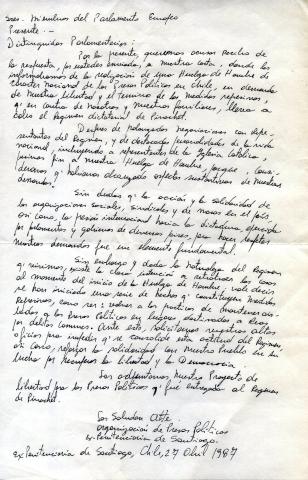 Sres. Miembros del Parlamento Europeo
Presente.-
Distinguidos Parlamentarios:
Por la presente, queremos acusar recibo de
la respuesta, por ustedes enviada, a nuestra carta, donde les
informábamos de la realización de una Huelga de Hambre de
carácter nacional de los Presos Políticos en Chile, en demanda
de Nuestra Libertad y el término de las medidas represivas,
q' en contra de nosotros y nuestros familiares, lleva a
cabo el Régimen dictatorial de Pinochet.
Después de prolongadas negociaciones con repre-
sentantes del Régimen, y de destacadas personalidades de la vida
nacional, incluyendo a representantes de la Iglesia Católica,
pusimos fin a nuestra Huelga de Hambre, porque, consi-
deramos q' habíamos alcanzado aspectos sustantivos de nuestras
demandas.
Sin dudas q' la acción y la solidaridad de
las organizaciones sociales, sindicales, y de masas en el país,
así como, la presión internacional hacia la dictadura, ejercida
por parlamentos y gobiernos de diversos países, para hacer respetar
nuestras demandas fue un elemento fundamental.
Sin embargo y dada la naturaleza del Régimen
q' vivimos, existe la clara intención de retrotraer las cosas
al momento del inicio de la Huelga de Hambre, vale decir,
se han iniciado una serie de hechos q' constituyen medidas
Represivas, como ser: volver a las prácticas de mantener ais-
lados a los Presos Políticos en lugares destinados a reos
por delitos comunes. Ante esto, solicitamos vuestros altos
oficios para impedir q' se consolide esta actitud del Régimen
así como, reforzar la solidaridad con Nuestro Pueblo en su
lucha por recuperar la Libertad y la Democracia
Les adjuntamos Nuestro Proyecto de
Libertad para los Presos Políticos q' fue entregado al Régimen
de Pinochet.
Les Saludan Atte.
Organización de Presos Políticos
ex-Penitenciaría de Santiago.
ex Penitenciaría de Santiago, Chile, 27 Abril 1987